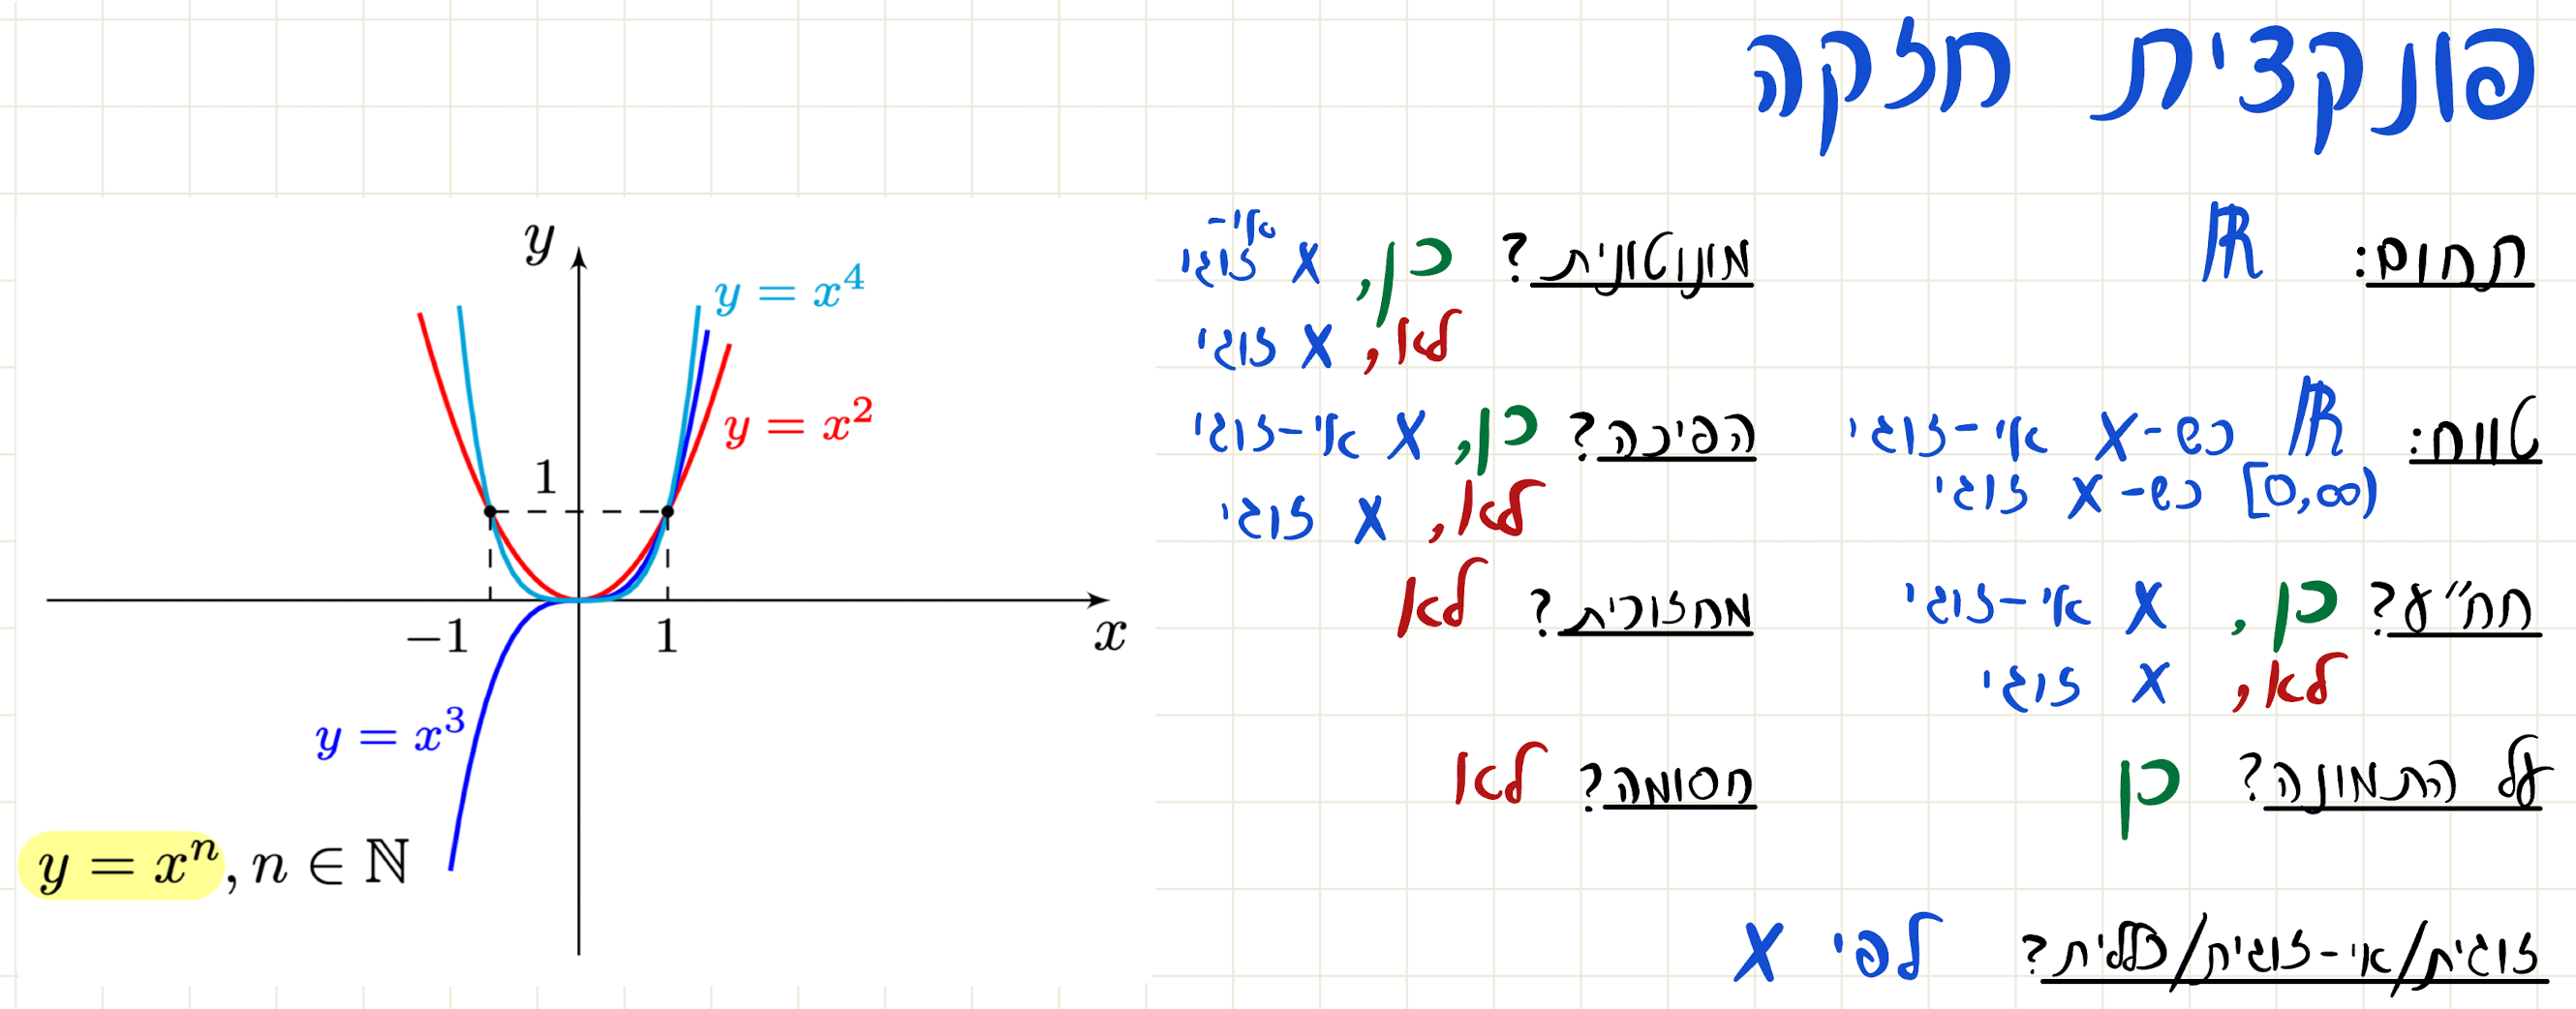 פונקצית חזקה
תחום: ℝ
טווח: ℝ כש-X אי-זוגי
[0,∞) כש-X זוגי
חח״ע? כן, X אי-זוגי
לא, X זוגי
על התמונה? כן
זוגית/אי-זוגית/כללית? לפי X
מונוטונית? כן, X אי-זוגי
לא, X זוגי
הפיכה? כן, X אי-זוגי
לא, X זוגי
מחזורית? לא
חסומה? לא
y
y = x⁴
y = x²
1
−1
1
x
y = x³
y = xⁿ, n ∈ ℕ